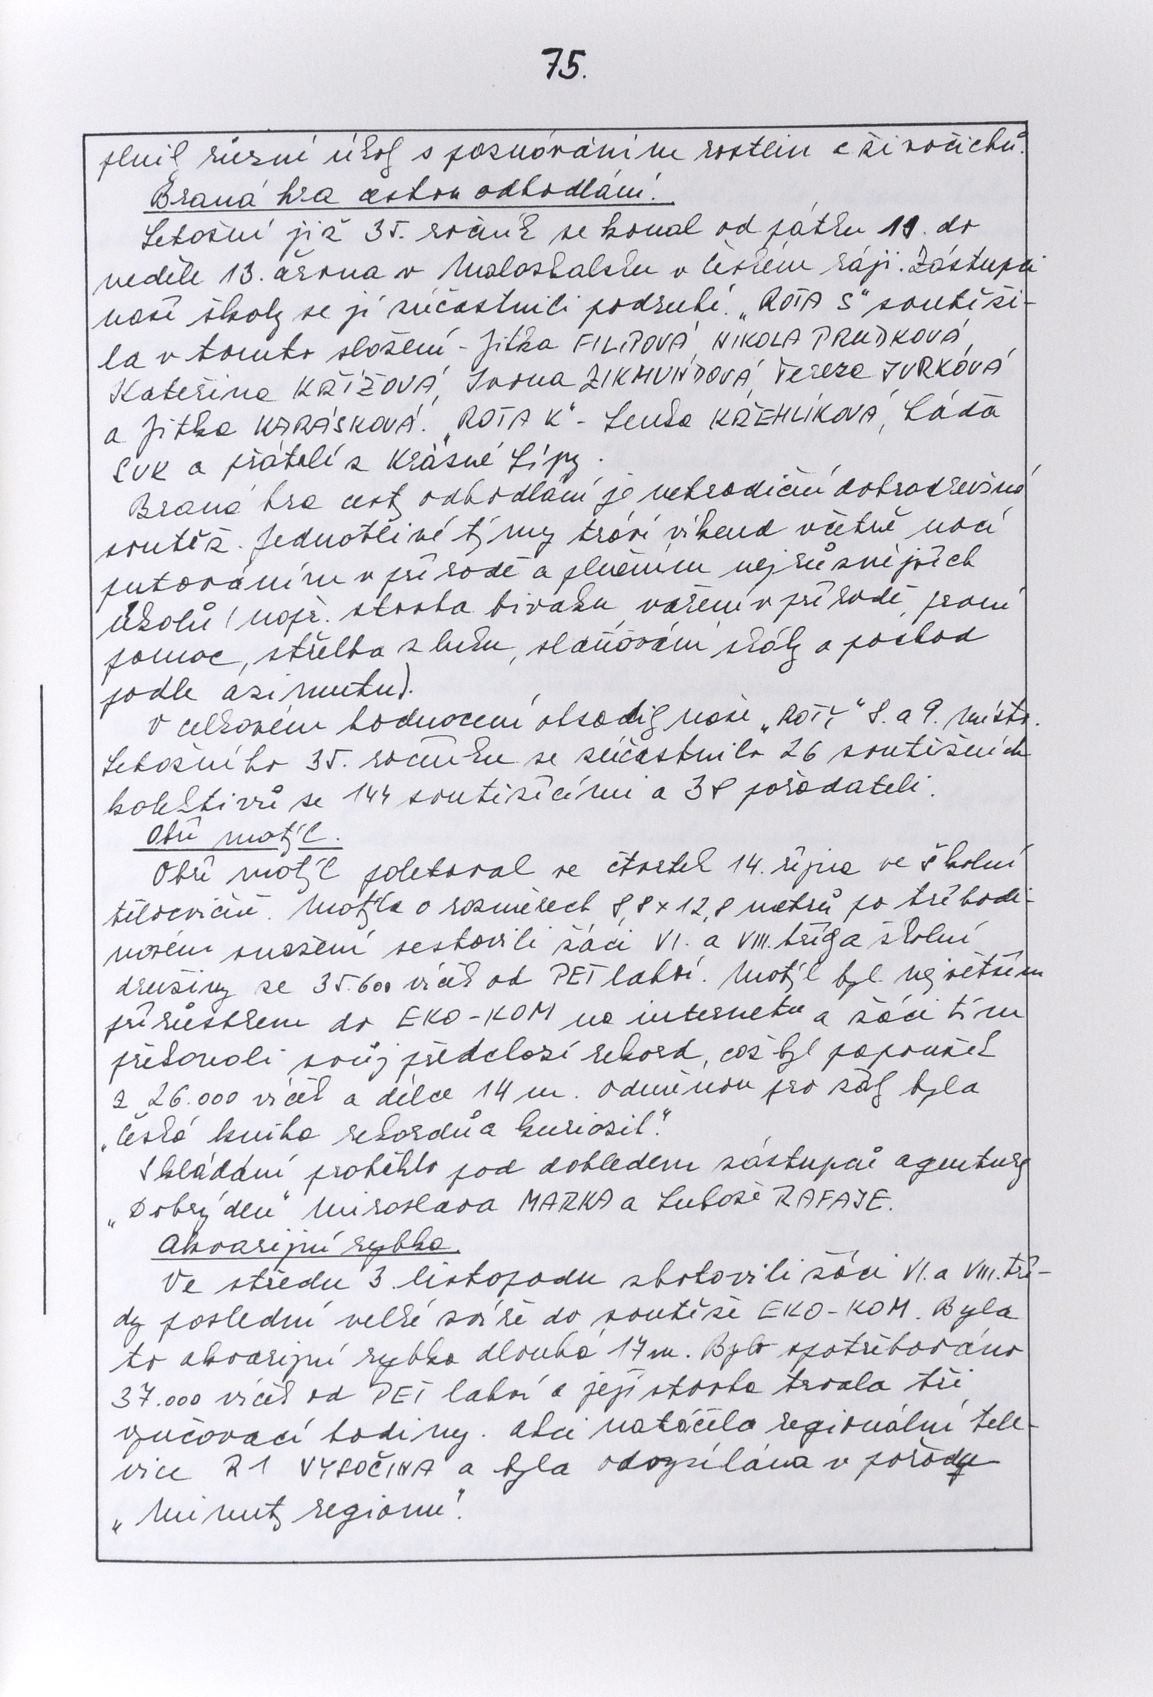 75.
plnily různé úkoly s poznáváním rostlin a živočichů.
Braná hra cestou odhodlání.
Letošní již 35. ročník se konal od pátku 11. do
neděle 13. června v Maloskalsku v Českém ráji. Zástupci
naší školy se jí zúčastnili podruhé. „ROTA S" soutěži-
la v tomto složení - Jitka FILIPOVÁ, NIKOLA PRUDKOVÁ,
Kateřina KŘÍŽOVÁ, Ivona ZIKMUNDOVÁ, Tereza JURKOVÁ
a Jitka KARÁSKOVÁ. „ROTA K" - Lenka KŘEHLÍKOVÁ, Láďa
CVK a přátelé z Krásné Lípy.
Braná hra cesty odhodlání je netradiční dobrodružná
soutěž. Jednotlivé týmy tráví víkend včetně nocí
putováním v přírodě a plněním nejrůznějších
úkolů (např. stavba bivaku, vaření v přírodě, první
pomoc, střelba z luku, slaňování skály a pochod
podle azimutu).
V celkovém hodnocení obsadily naše „ROTY" 8. a 9. místo.
Letošního 35. ročníku se zúčastnilo 26 soutěžních
kolektivů se 144 soutěžícími a 38 pořadateli.
Obří motýl.
Obří motýl poletoval ve čtvrtek 14. října ve školní
tělocvičně. Motýla o rozměrech 8,8 x 12,8 metrů po tříhodi-
novém snažení sestavili žáci VI. a VIII. tříd a školní
družiny ze 35.600 víček od PET lahví. Motýl byl největším
přírůstkem do EKO-KOM na internetu a žáci tím
překonali svůj předchozí rekord, což byl papoušek
z 26.000 víček a délce 14 m. Odměnou pro žáky byla
„Česká kniha rekordů a kuriozit".
Skládání proběhlo pod dohledem zástupců agentury
„Dobrý den" Miroslava MARKA a Luboše RAFAJE.
Akvarijní rybka.
Ve středu 3. listopadu zhotovili žáci VI. a VIII. tří-
dy poslední velké zvíře do soutěže EKO-KOM. Byla
to akvarijní rybka dlouhá 17 m. Bylo spotřebováno
37.000 víček od PET lahví a její stavba trvala tři
vyučovací hodiny. Akci natáčela regionální tele-
vize R1 VYSOČINA a byla odvysílána v pořadu
„Minuty regionu".